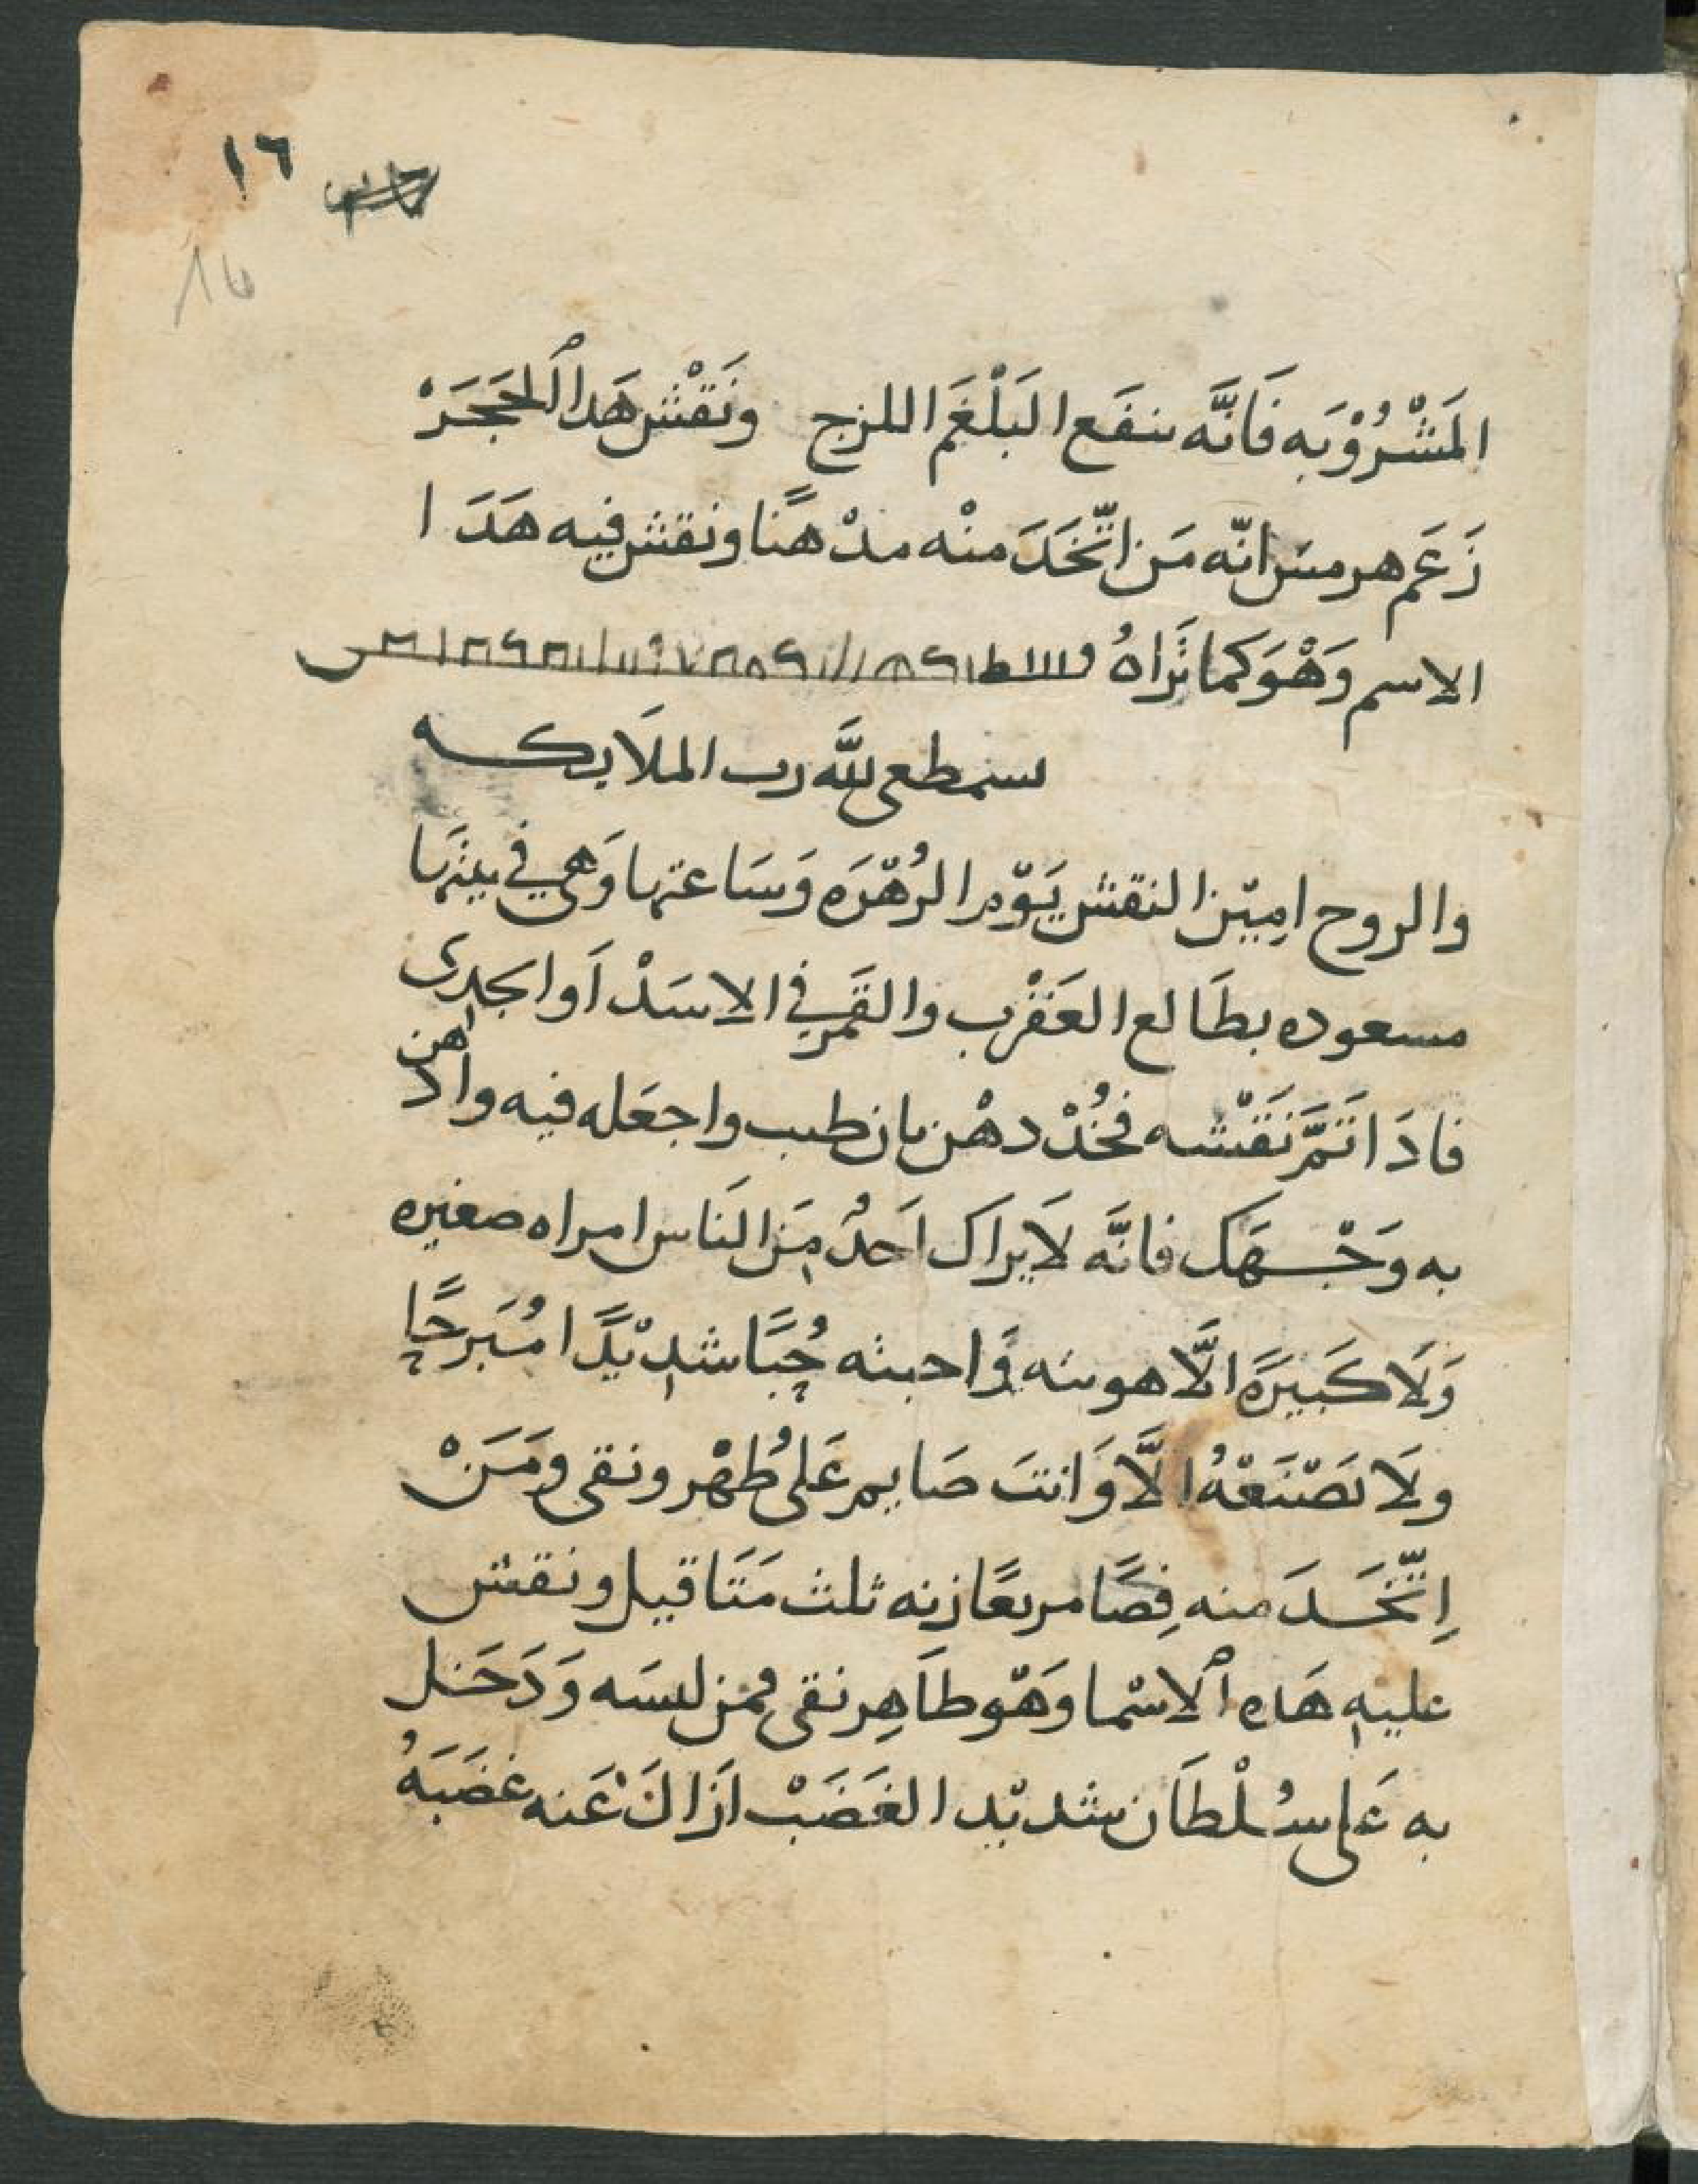 ١٦
16
المَشْرُوْبَه فَانَّه ينفَع البَلْغَم اللزج ونَقْش هَدا الحَجَرْ
زَعَم هرمس انّه مَن اتّخَدَ منْه مدْهنًا ونقش فيه هَدَا
الاسم وَهْوَ كما تَراهُ
لله رب الملَايكه
والروح امِيْن النقش يَوْم الزُهْرَه وَسَاعتها وَهي في بيتها
مسعوده بطَالع العَقْرب والقَمَر في الاسَدْ اَو الجدى
فادَا تَمَّ نَقْشه فخُدْ دهْن بان طيب واجعَله فيه وادهن
به وَجْهَك فانَّه لَا يراك اَحدٌ مِنَ النَاس امراه صغيره
وَلَا كَبيرَه الَّا هويته وَاحبته حُبًّا شديْدًا مُبَرحًا
ولَا تَصْنَعْهُ الَّا وَانتَ صَايم عَلى طُهْر ونقى ومَنْ
اِتّخَدَ منه فِصًّا مربعًا زنه ثلث مَثَاقيل ونقش
عليه هَده الاسْما وَهْو طاَهِر نقى فمن لبسَه وَدَخَل
به عَلى سُلْطَان شديْد الغَضَبْ اَزَالَ عَنه غضَبَهُ